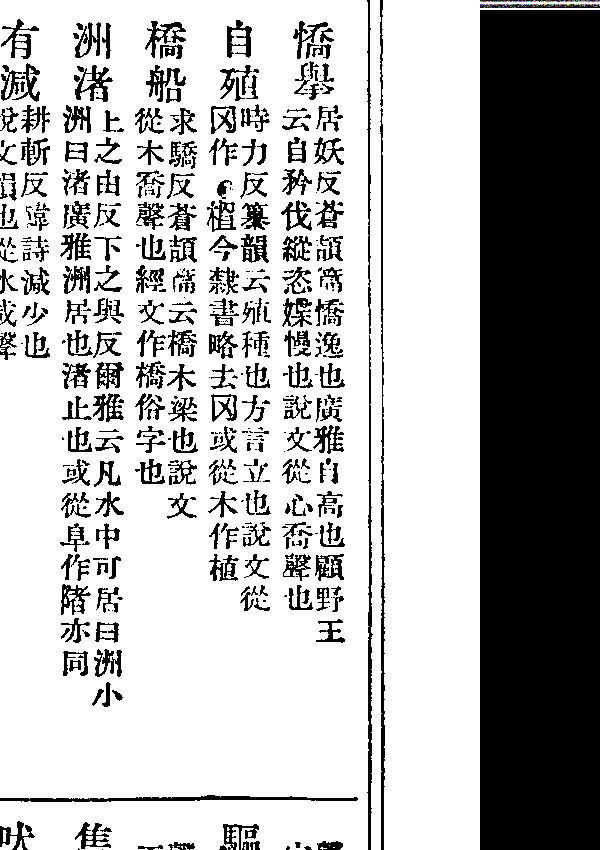 憍舉
居妖反蒼頡篇憍逸也廣雅自高也顧野王
云自矜伐縱恣媟慢也說文從心喬聲也
自殖
時力反纂韻云殖種也方言立也說文從
冈作㯰今隸書略去冈或從木作植
橋船
求驕反蒼頡篇云橋木梁也說文
從木喬聲也經文作橋俗字也
洲渚
上之由反下之與反爾雅云凡水中可居曰洲小
洲曰渚廣雅洲居也渚止也或從阜作陼亦同
有減
耕斬反韓詩減少也
說文損也從水咸聲
驅
隻
吠